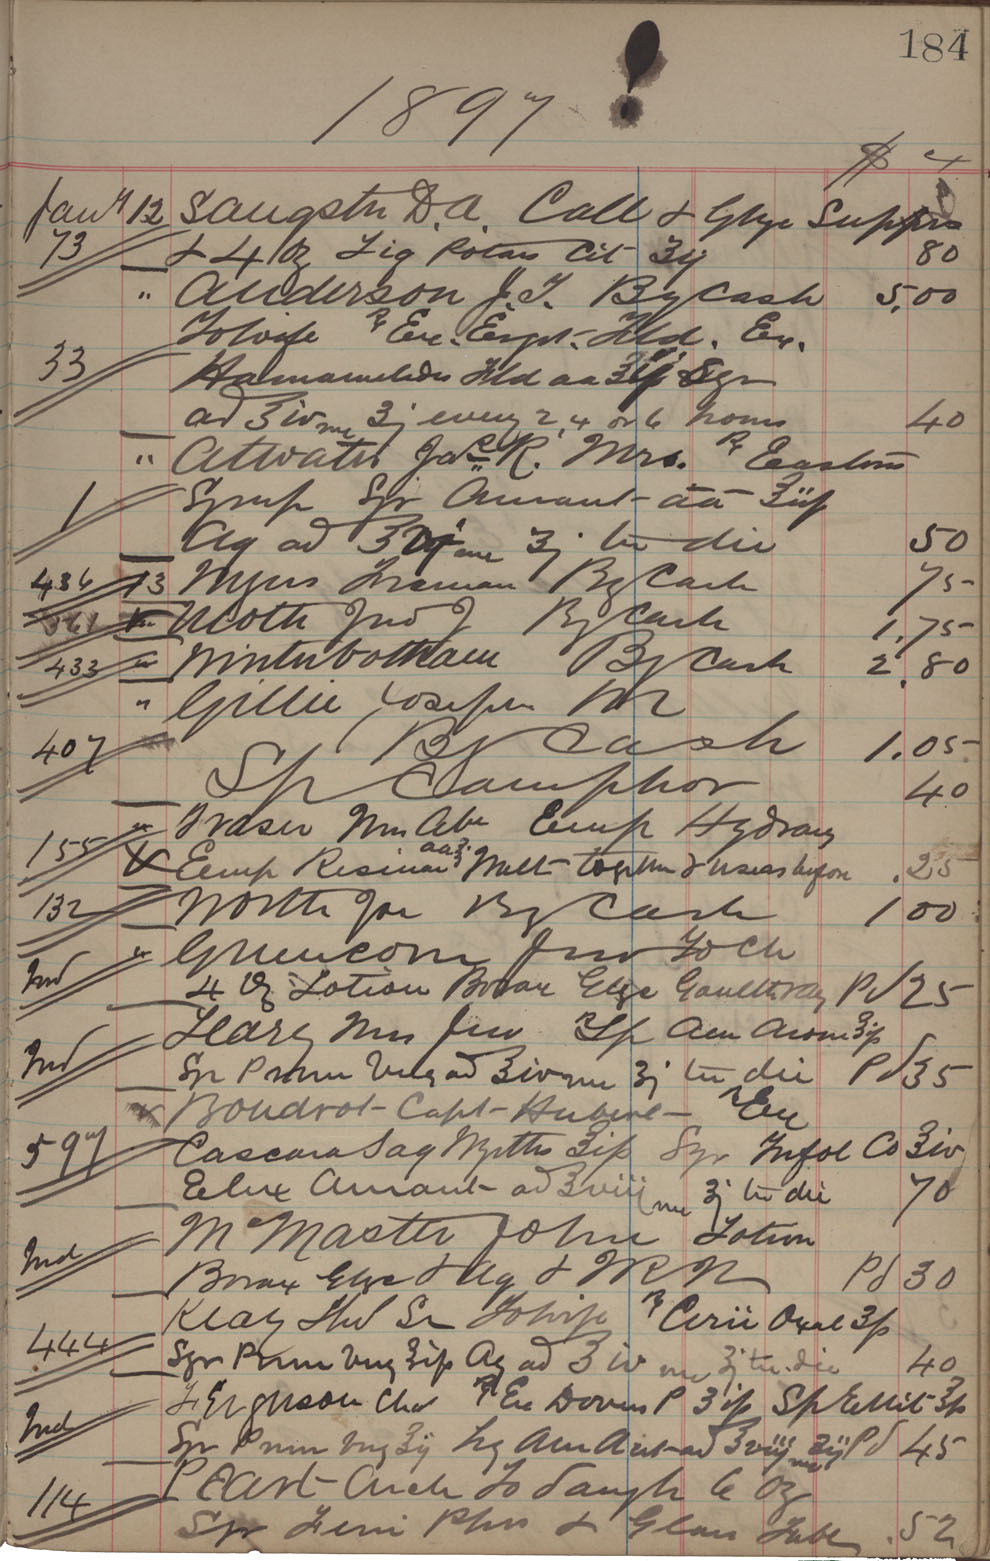 184
1897
$ c
Jany 12 Sangster D.A. Call & Glyc Suppos
73 & 4 Oz Liq Potass Cit ʒij 80
" Anderson J.J. By Cash 5,00
To wife ℞ Ext. Ergot. Fld. Ext.
33 Hamamelidis Fld aa Syr
ad ℥iv me ʒj every 2, 4 or 6 hours 40
" Attwater Jas R. Mrs. ℞ Eastons
1 Syrup Syr Aurant aa ℥iiſs
Aq ad ℥vj me ʒj ter die 50
436 13 Myers Freeman By Cash 75
" Jno J By Cash 1.75
433 " Winterbotham By Cash 2.80
" Gillie Joseph M
407 By Cash 1.05
Sp Camphor 40
" Fraser Wm Abr Emp Hydrarg
155 Emp Resinae aa ℥ Melt together & use as before .25
132 North Jos By Cash 1 00
" Greencorn Jno To Ch
Ind 4 Oz Lotion Borax Glyc Gaultheria Pd 25
Hardy Mrs Jno ℞ Sp Am Arom ℥ſs
Ind Syr Prun Virg ad ℥iv me ʒj ter die Pd 35
Boudrot Capt Hubert ℞ Ext
597 Cascara Sag Syr Trifol Co ℥iv
Elix Aurant ad ℥viii me ʒj ter die 70
McMaster John Lotion
Ind Borax Glyc & Aq & Pd 30
Keay Thd Sr To wife ℞ Cerii Oxal ʒſs
444 Syr Prun Virg ℥iſs Aq ad ℥iv me ʒj ter die 40
Ferguson Chas ℞ Sp Eth Nit ℥ſs
Ind Syr Prun Virg ℥ij Liq Am Acet ad ℥viij me ʒij Pd 45
Peart To daugh 6 Oz
114 Syr Ferri Phos & Glass Tube .52